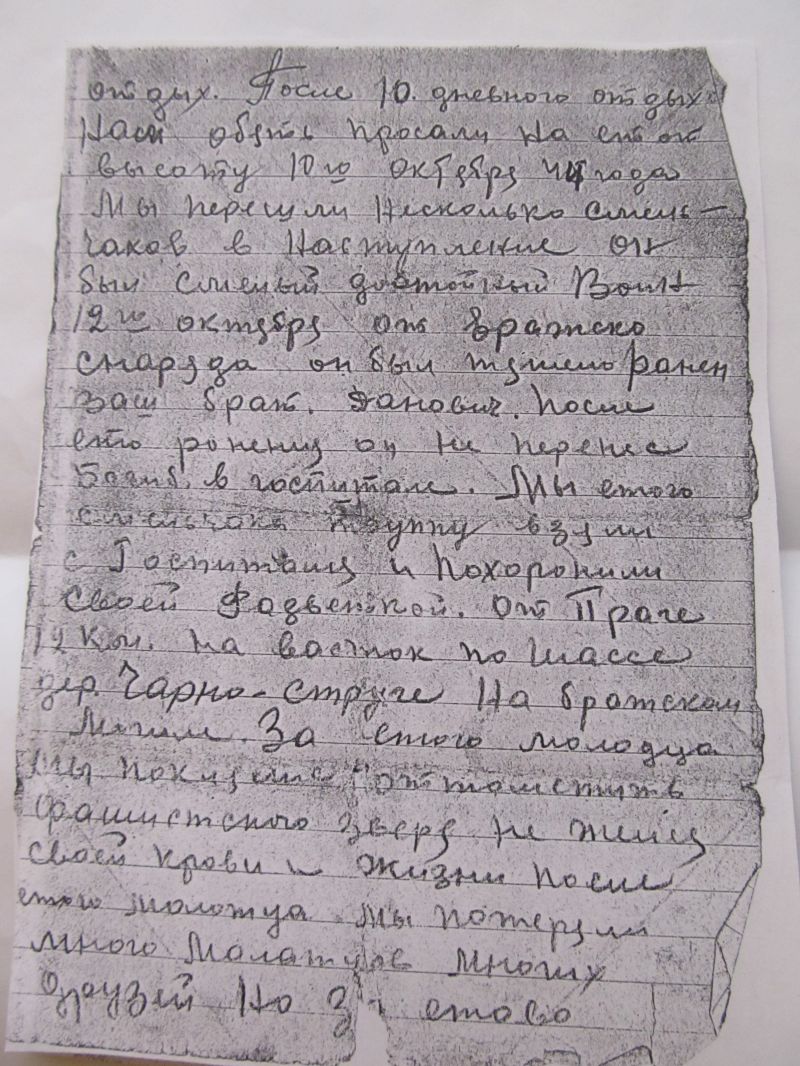 отдых. После 10. дневного отдых
Нас обять просали на етот
высоту 10го октября 44 года
Мы перешли несколько смель-
чаков в наступление он
был смелый достойный Воин
12го октября от вражско
снаряда он был тяжело ранен
ваш брат. Данович. После
ето ронения он не перенес
в госпитале. Мы етого
смельчака труппу взяли
с Госпиталя и похоронили
своей От Праге
12 км. на васток по шассе
дер. Чарно-Струге На братском
Могиле. За етого молодца
мы поклялис оттомстить
фашистского зверя не жалея
своей крови и жизни после
етого молотца мы потеряли
много малатцов многих
друзей Но за етово